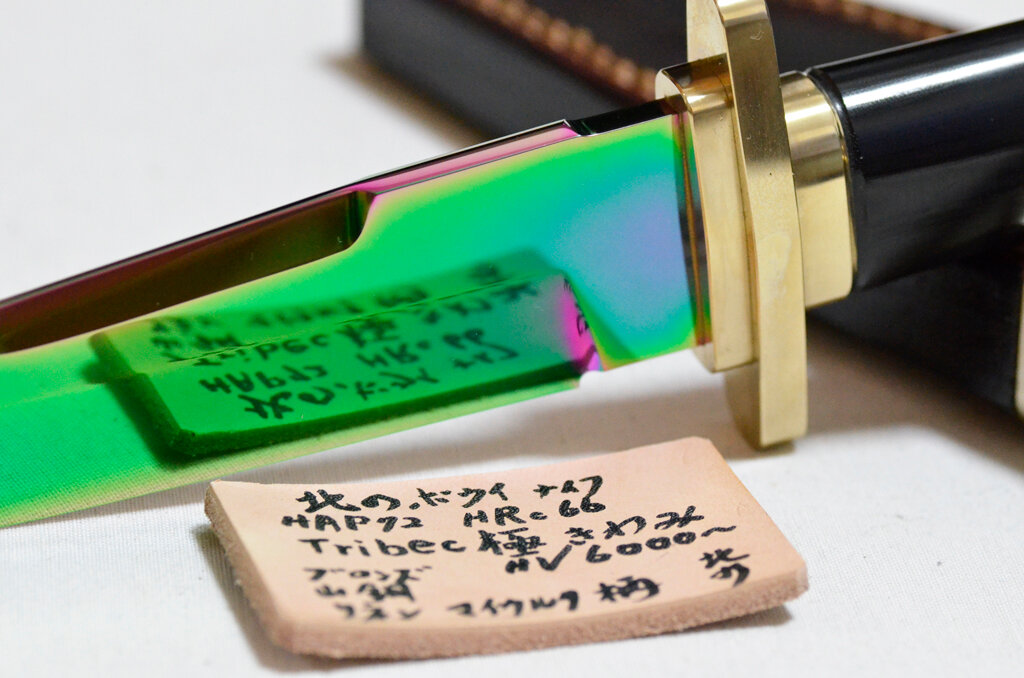 北の.ボウイ ナイフ
HAP72 HRc 66
Tribec 極 きわみ
HV 6000〜
ブロンズ
山銅
フメン マイカルタ 柄
北の